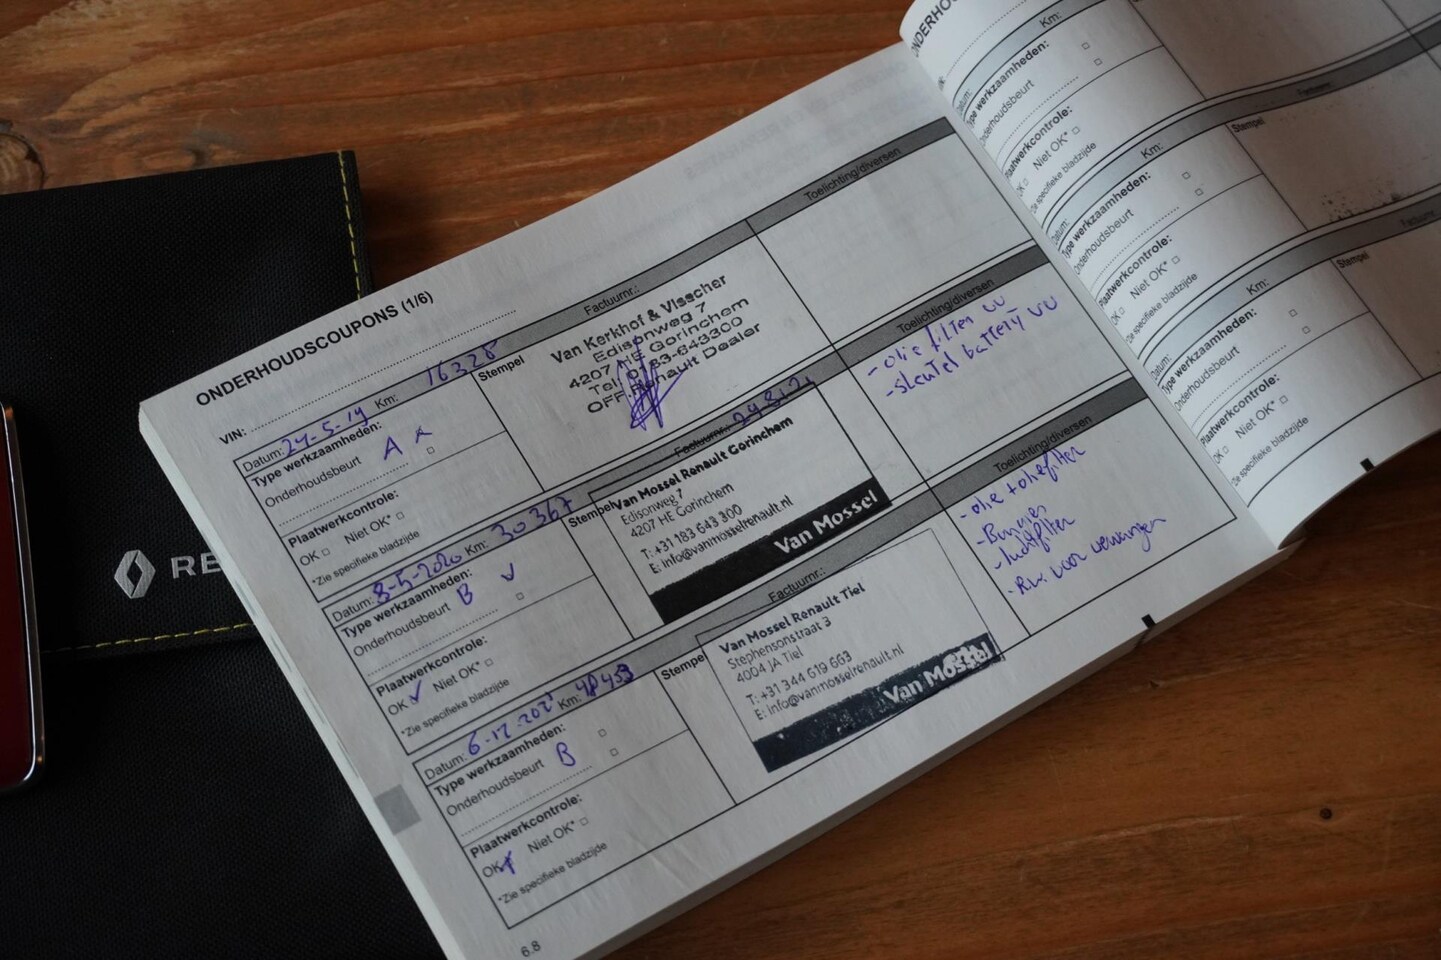 ONDERHOUDSCOUPONS (1/6)
VIN:
Datum: 24-5-19 Km: 16328
Factuurnr.:
Toelichting/diversen
Type werkzaamheden:
Onderhoudsbeurt A
Plaatwerkcontrole:
OK □ Niet OK* □
*Zie specifieke bladzijde
Stempel
Van Kerkhof & Visscher
Edisonweg 7
4207 HE Gorinchem
Tel. 0183-643300
OFF. Renault Dealer
Datum: 8-5-2020 Km: 30367
Factuurnr.:
Toelichting/diversen
Type werkzaamheden:
Onderhoudsbeurt B
Plaatwerkcontrole:
OK Niet OK* □
*Zie specifieke bladzijde
Stempel
Van Mossel Renault Gorinchem
Edisonweg 7
4207 HE Gorinchem
T: +31 183 643 300
E: info@vanmosselrenault.nl
Van Mossel
- olie filter vv
- sleutel batterij vv
Datum: 6-12-202 Km:
Factuurnr.:
Toelichting/diversen
Type werkzaamheden:
Onderhoudsbeurt B
Plaatwerkcontrole:
OK Niet OK* □
*Zie specifieke bladzijde
Stempel
Van Mossel Renault Tiel
Stephensonstraat 3
4004 JA Tiel
T: +31 344 619 663
E: info@vanmosselrenault.nl
Van Mossel
- olie + oliefilter
- Bougies
- luchtfilter
voor vervangen
6.8
Km:
Datum:
Type werkzaamheden:
Onderhoudsbeurt
Plaatwerkcontrole:
OK □ Niet OK* □
Zie specifieke bladzijde
Km:
Factuurnr.
Datum:
Type werkzaamheden:
Onderhoudsbeurt
Plaatwerkcontrole:
OK □ Niet OK* □
Zie specifieke bladzijde
Stempel
Km:
Factuurnr.
Datum:
Type werkzaamheden:
Onderhoudsbeurt
Plaatwerkcontrole:
OK □ Niet OK* □
Zie specifieke bladzijde
Stempel
RE